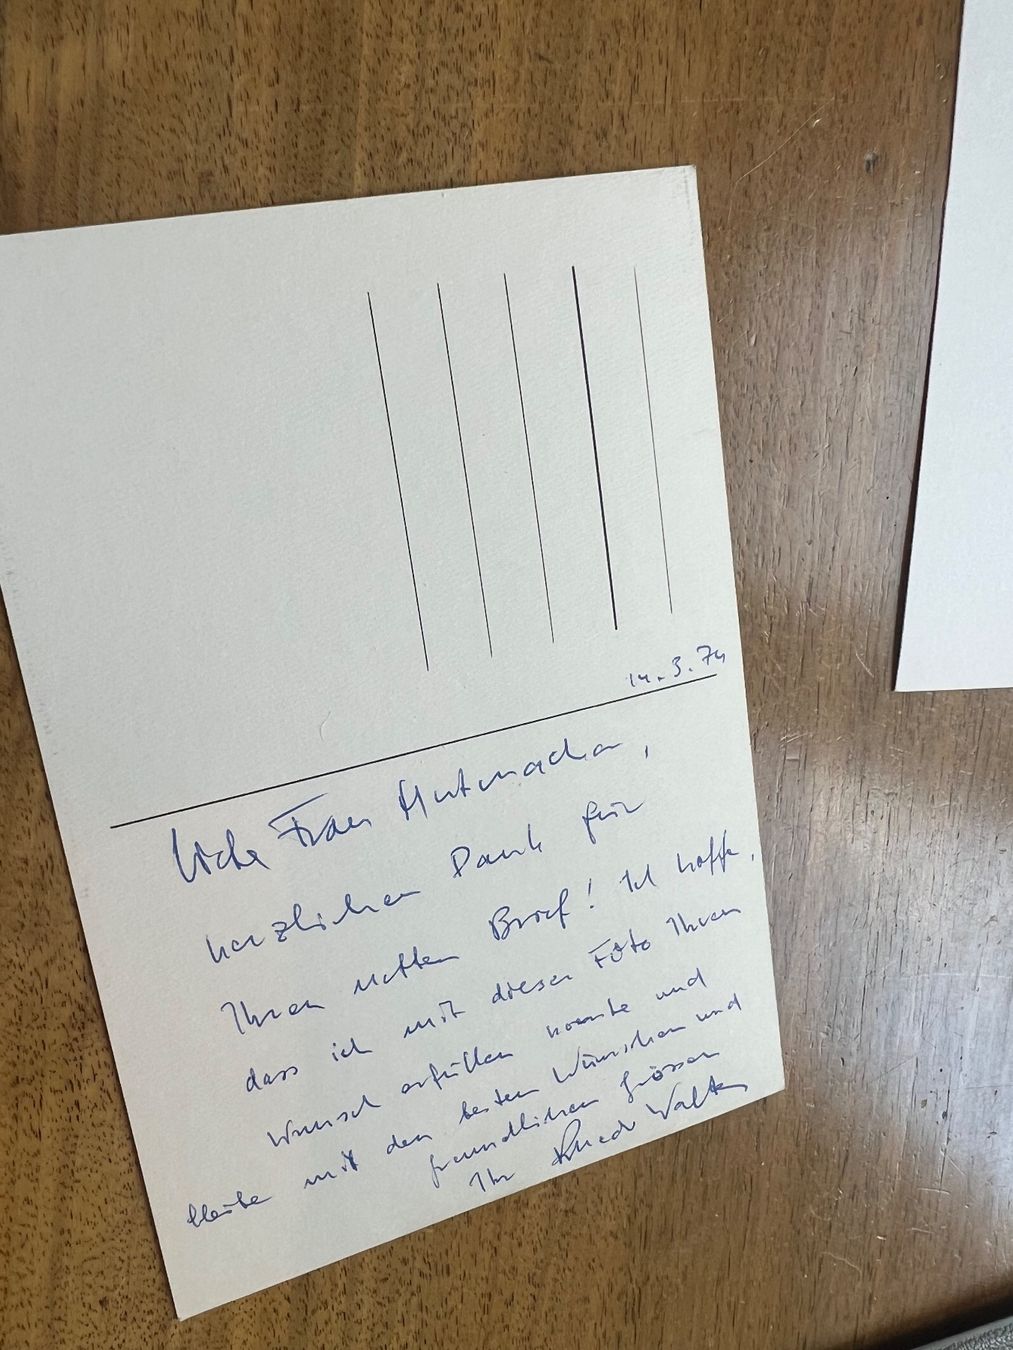 14.3.74
Liebe Frau Hutmacher,
herzlichen Dank für
Ihren netten Brief! Ich hoffe,
dass ich mit diesem Foto Ihren
Wunsch erfüllen konnte und
bleibe mit den besten Wünschen und
freundlichen Grüssen
Ihr Ruedi Walter